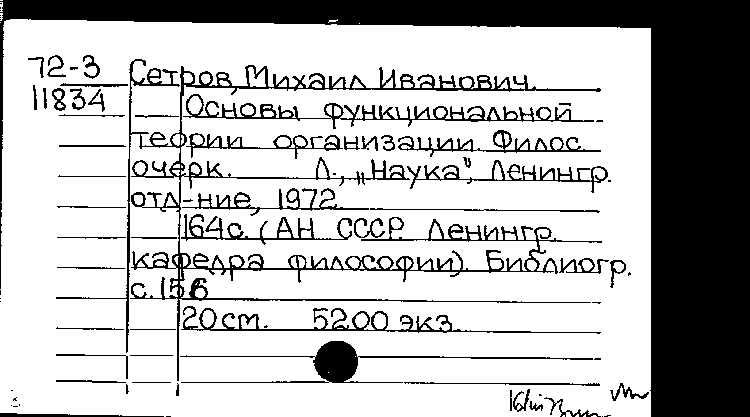 72-3 Сетров, Михаил Иванович.
11834 Основы функциональной
теории организации. Филос.
очерк. Л., „Наука", Ленингр.
отд-ние, 1972.
164с. (АН СССР. Ленингр.
кафедра философии). Библиогр.
с.156
20 см. 5200 экз.